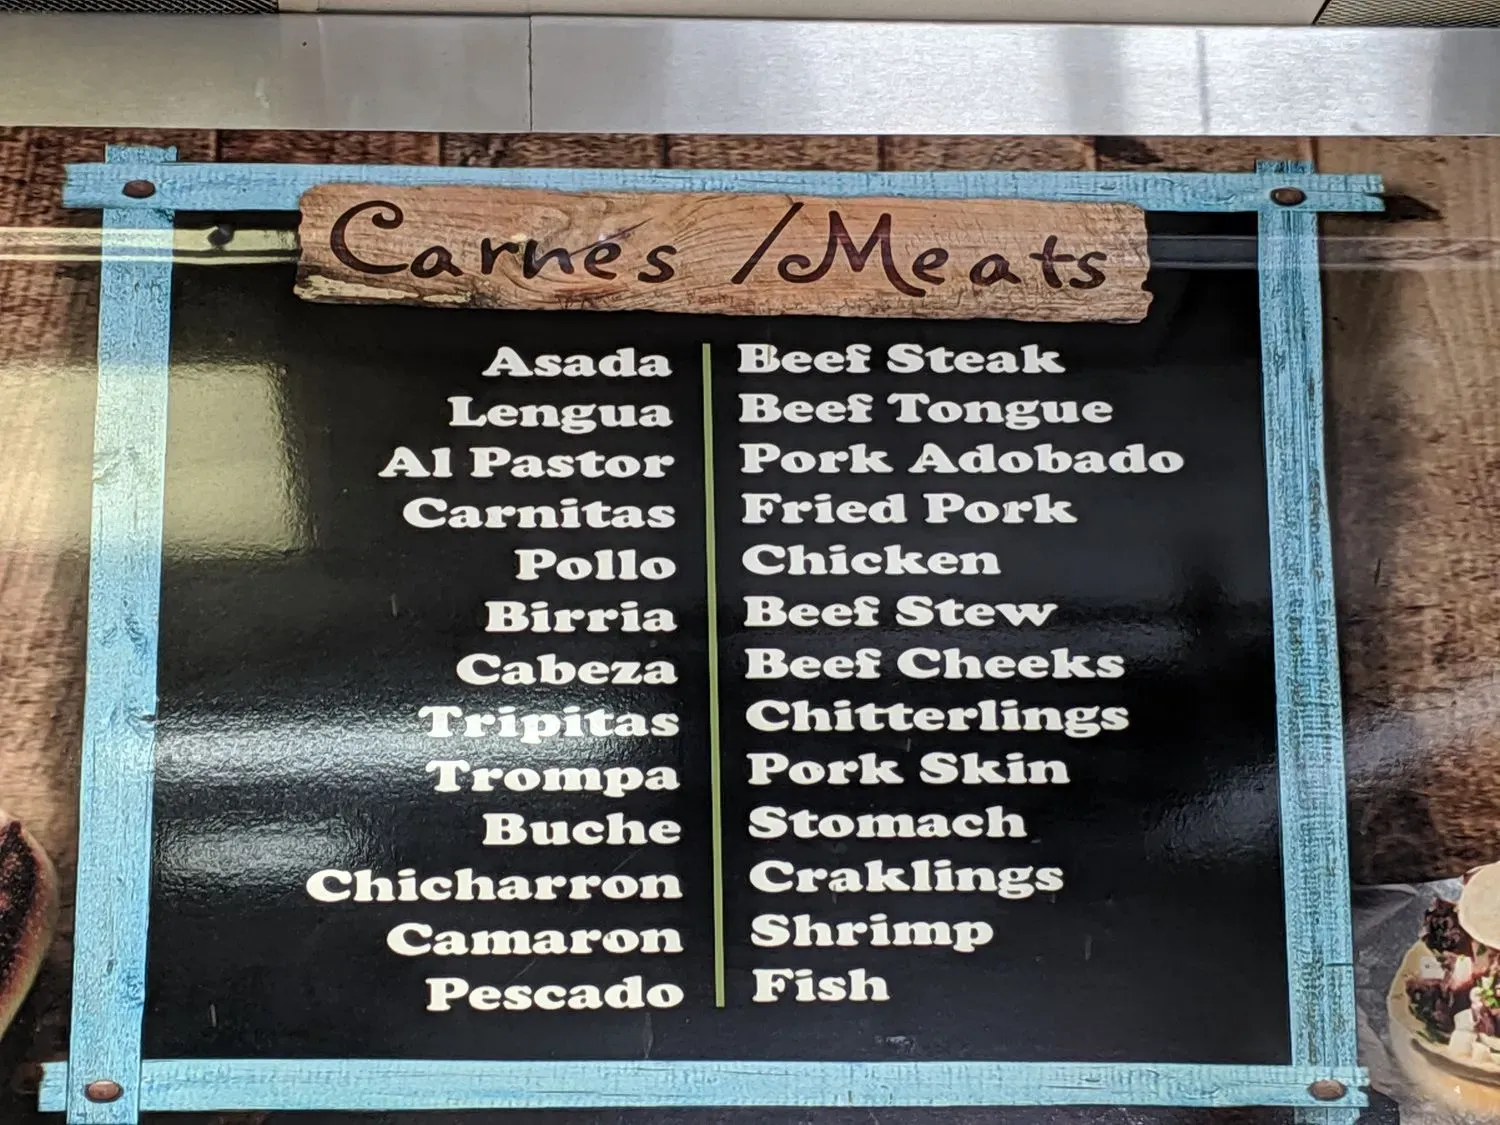 Carnes / Meats
Asada Beef Steak
Lengua Beef Tongue
Al Pastor Pork Adobado
Carnitas Fried Pork
Pollo Chicken
Birria Beef Stew
Cabeza Beef Cheeks
Tripitas Chitterlings
Trompa Pork Skin
Buche Stomach
Chicharron Craklings
Camaron Shrimp
Pescado Fish